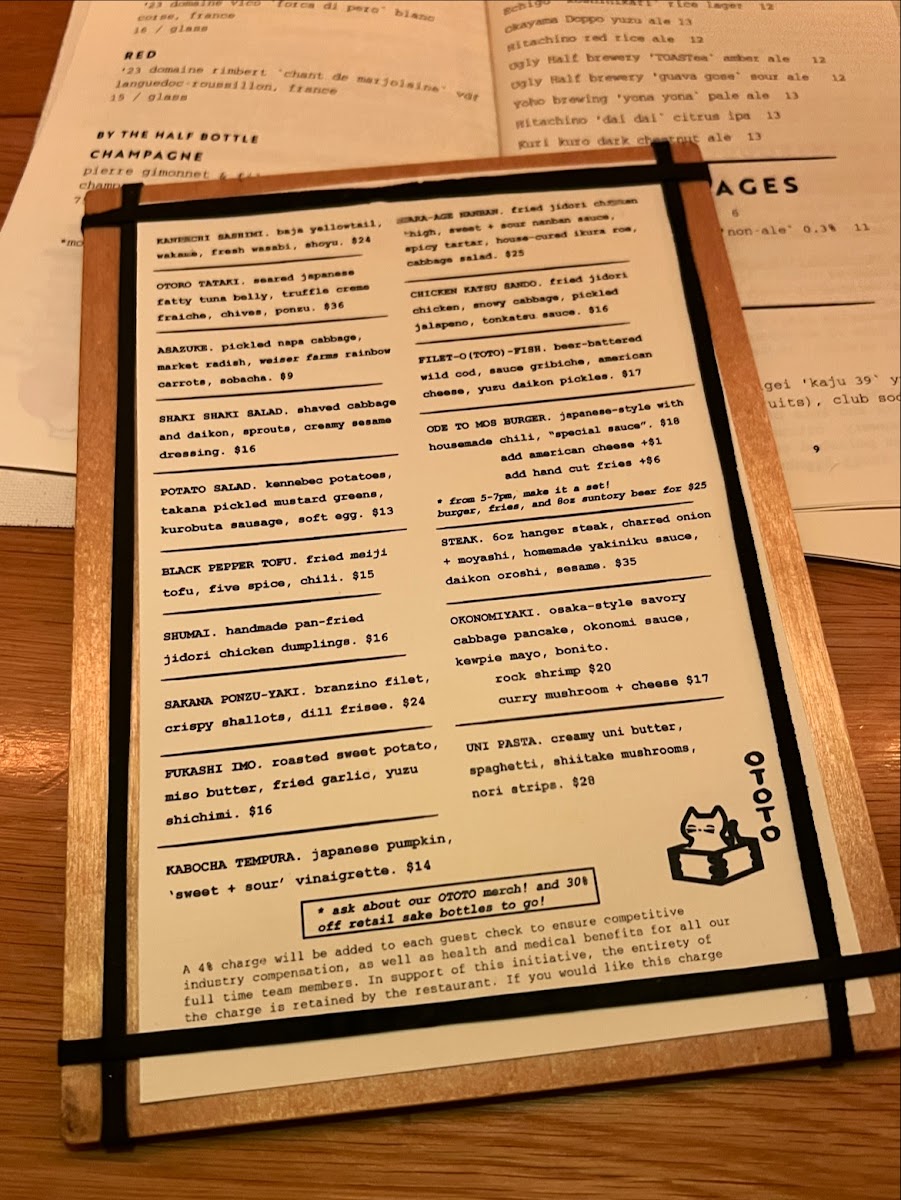 '23 domaine vico 'torca di pero' blanc
corse, france
16 / glass
RED
'23 domaine rimbert 'chant de marjolaine' vdf
languedoc-roussillon, france
15 / glass
BY THE HALF BOTTLE
CHAMPAGNE
pierre gimonnet &
rice lager 12
Okayama Doppo yuzu ale 13
Hitachino red rice ale 12
Ugly Half brewery 'TOASTea' amber ale 12
Ugly Half brewery 'guava gose' sour ale 12
yoho brewing 'yona yona' pale ale 13
Hitachino 'dai dai' citrus ipa 13
Kuri kuro dark chestnut ale 13
AGES
6
'non-ale' 0.3% 11
gei 'kaju 39'
uits), club
9
KANPACHI SASHIMI. baja yellowtail,
wakame, fresh wasabi, shoyu. $24
OTORO TATAKI. seared japanese
fatty tuna belly, truffle creme
fraiche, chives, ponzu. $36
ASAZUKE. pickled napa cabbage,
market radish, weiser farms rainbow
carrots, sobacha. $9
SHAKI SHAKI SALAD. shaved cabbage
and daikon, sprouts, creamy sesame
dressing. $16
POTATO SALAD. kennebec potatoes,
takana pickled mustard greens,
kurobuta sausage, soft egg. $13
BLACK PEPPER TOFU. fried meiji
tofu, five spice, chili. $15
SHUMAI. handmade pan-fried
jidori chicken dumplings. $16
SAKANA PONZU-YAKI. branzino filet,
crispy shallots, dill frisee. $24
FUKASHI IMO. roasted sweet potato,
miso butter, fried garlic, yuzu
shichimi. $16
KABOCHA TEMPURA. japanese pumpkin,
'sweet + sour' vinaigrette. $14
KARA-AGE NANBAN. fried jidori chicken
thigh, sweet + sour nanban sauce,
spicy tartar, house-cured ikura roe,
cabbage salad. $25
CHICKEN KATSU SANDO. fried jidori
chicken, snowy cabbage, pickled
jalapeno, tonkatsu sauce. $16
FILET-O(TOTO)-FISH. beer-battered
wild cod, sauce gribiche, american
cheese, yuzu daikon pickles. $17
ODE TO MOS BURGER. japanese-style with
housemade chili, "special sauce". $18
add american cheese +$1
add hand cut fries +$6
* from 5-7pm, make it a set!
burger, fries, and 8oz suntory beer for $25
STEAK. 6oz hanger steak, charred onion
+ moyashi, homemade yakiniku sauce,
daikon oroshi, sesame. $35
OKONOMIYAKI. osaka-style savory
cabbage pancake, okonomi sauce,
kewpie mayo, bonito.
rock shrimp $20
curry mushroom + cheese $17
UNI PASTA. creamy uni butter,
spaghetti, shiitake mushrooms,
nori strips. $28
OTOTO
* ask about our OTOTO merch! and 30%
off retail sake bottles to go!
A 4% charge will be added to each guest check to ensure competitive
industry compensation, as well as health and medical benefits for all our
full time team members. In support of this initiative, the entirety of
the charge is retained by the restaurant. If you would like this charge